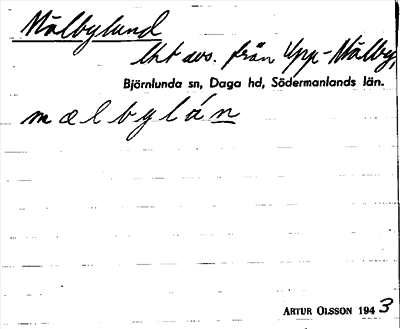 Målbylund
lht avs. från Upp-Målby,
Björnlunda sn, Daga hd, Södermanlands län.
mælbylán
ARTUR OLSSON 1943